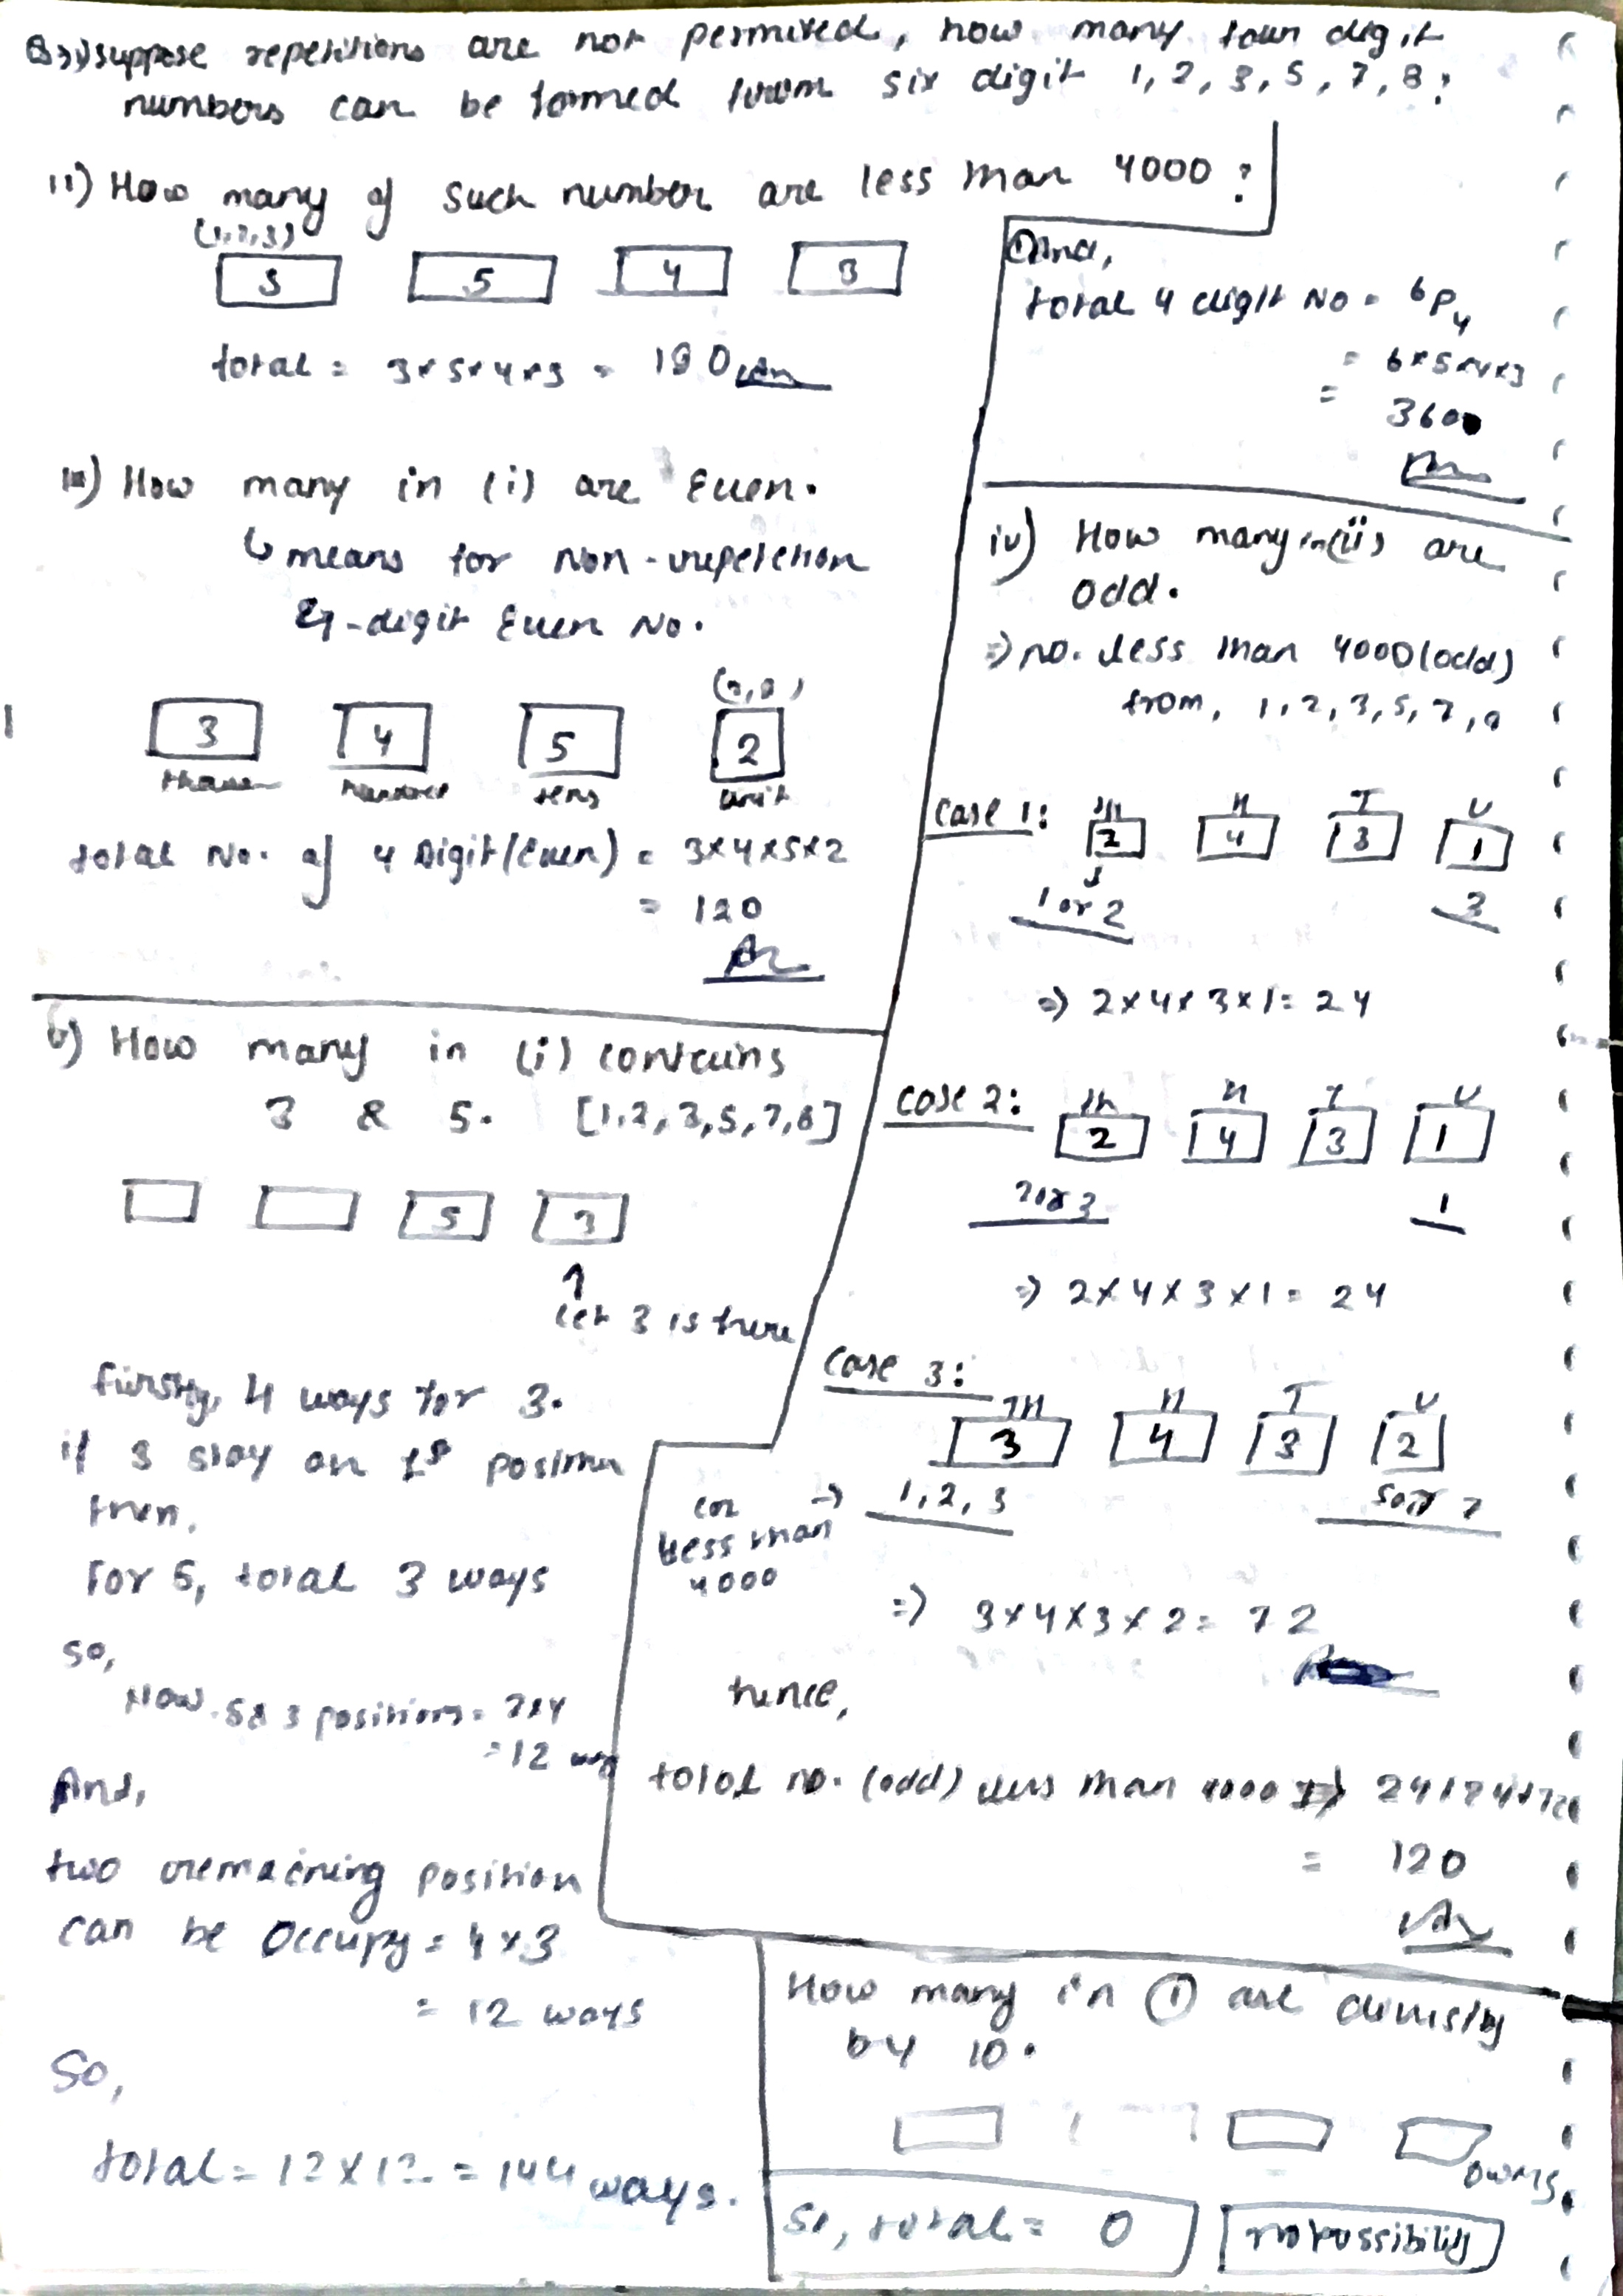 Suppose repetitions are not permited, how many four digit
numbers can be formed from six digit 1, 2, 3, 5, 7, 8?
ii) How many of such number are less than 4000?
(1,2,3)
3 5 4 3
total = 3×5×4×3 = 180
iii) How many in (i) are Even.
↳ means for Non-repetetion
4-digit Even No.
3 4 5 2
tens unit
total No. of 4 Digit (Even) = 3×4×5×2
= 120
v) How many in (i) contains
3 & 5. [1,2,3,5,7,8]
5 3
↑
let 3 is there
firstly, 4 ways for 3.
if 3 stay on 1st position
then,
For 5, total 3 ways
so,
Now 5 & 3 positions = 3×4
= 12 way
And,
two remaining position
can be occupy = 4×3
= 12 ways
So,
total = 12×12 = 144 ways.
total 4 digit No = ⁶P₄
= 6×5×4×3
= 360
iv) How many in (ii) are
odd.
⇒ no. less than 4000 (odd)
from, 1, 2, 3, 5, 7, 8
Case 1: TH H T U
2 4 3 1
1 or 2 3
⇒ 2×4×3×1 = 24
Case 2: TH H T U
2 4 3 1
2 or 3 1
⇒ 2×4×3×1 = 24
Case 3:
TH H T U
3 4 3 2
⇒ 1, 2, 3 5 or 7
less than
4000
⇒ 3×4×3×2 = 72
hence,
total no. (odd) less than 4000 ⇒ 24+24+72
= 120
How many in ① are divisiby
by 10.
So, total = 0 no possibility